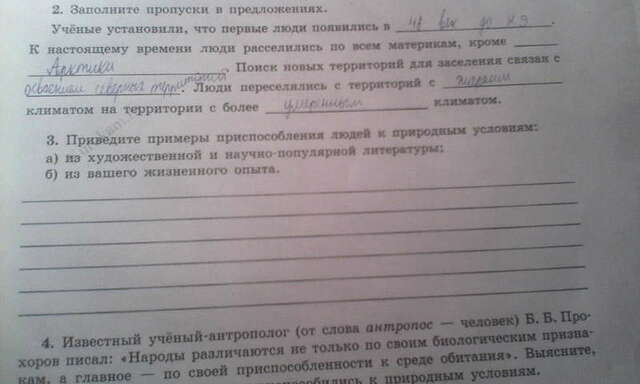 2. Заполните пропуски в предложениях.
Учёные установили, что первые люди появились в 4й век до н.э.
К настоящему времени люди расселились по всем материкам, кроме
Арктики. Поиск новых территорий для заселения связан с
освоением северных территорий. Люди переселялись с территорий с жарким
климатом на территории с более умеренным климатом.
3. Приведите примеры приспособления людей к природным условиям:
а) из художественной и научно-популярной литературы;
б) из вашего жизненного опыта.
4. Известный учёный-антрополог (от слова антропос — человек) Б. Б. Про-
хоров писал: «Народы различаются не только по своим биологическим призна-
кам, а главное — по своей приспособленности к среде обитания». Выясните,
приспособились к природным условиям.